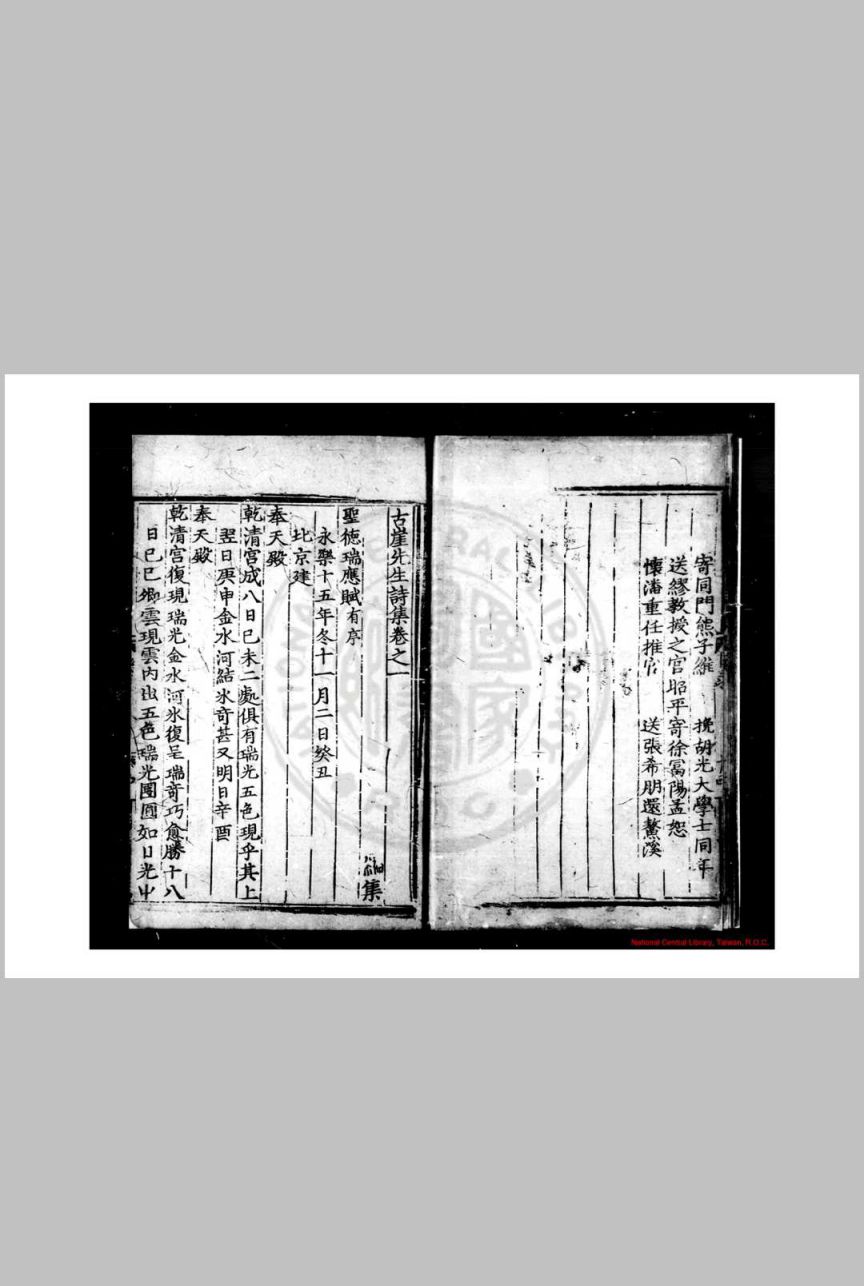 寄同門熊子維 挽胡光大學士同年
送繆教授之官昭平寄徐富陽孟恕
懷潘重任推官 送張希朋還鰲溪
古崖先生詩集卷之一
集
聖德瑞應賦有序
永樂十五年冬十一月二日癸丑
北京建
奉天殿
乾清宮成八日己未二處俱有瑞光五色現乎其上
翌日庚申金水河結氷奇甚又明日辛酉
奉天殿
乾清宮復現瑞光金水河氷復呈瑞奇巧愈勝十八
日己巳卿雲現雲內出五色瑞光團圓如日光中
National Central Library, Taiwan, R.O.C.